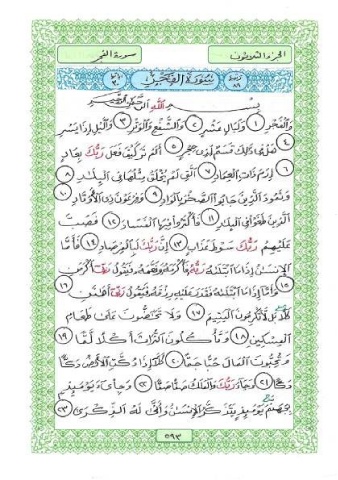 الجزء الثلاثون سورة الفجر
ترتيبها ٨٩ سورة الفجر آياتها ٣٠
بسم الله الرحمن الرحيم
وَالْفَجْرِ ١ وَلَيَالٍ عَشْرٍ ٢ وَالشَّفْعِ وَالْوَتْرِ ٣ وَالَّيْلِ إِذَا يَسْرِ
٤ هَلْ فِي ذَٰلِكَ قَسَمٌ لِّذِي حِجْرٍ ٥ أَلَمْ تَرَ كَيْفَ فَعَلَ رَبُّكَ بِعَادٍ
٦ إِرَمَ ذَاتِ الْعِمَادِ ٧ الَّتِي لَمْ يُخْلَقْ مِثْلُهَا فِي الْبِلَٰدِ ٨
وَثَمُودَ الَّذِينَ جَابُوا الصَّخْرَ بِالْوَادِ ٩ وَفِرْعَوْنَ ذِي الْأَوْتَادِ ١٠
الَّذِينَ طَغَوْا فِي الْبِلَٰدِ ١١ فَأَكْثَرُوا فِيهَا الْفَسَادَ ١٢ فَصَبَّ
عَلَيْهِمْ رَبُّكَ سَوْطَ عَذَابٍ ١٣ إِنَّ رَبَّكَ لَبِالْمِرْصَادِ ١٤ فَأَمَّا
الْإِنسَٰنُ إِذَا مَا ابْتَلَىٰهُ رَبُّهُ فَأَكْرَمَهُ وَنَعَّمَهُ فَيَقُولُ رَبِّي أَكْرَمَنِ
١٥ وَأَمَّا إِذَا مَا ابْتَلَىٰهُ فَقَدَرَ عَلَيْهِ رِزْقَهُ فَيَقُولُ رَبِّي أَهَٰنَنِ ١٦
كَلَّا بَل لَّا تُكْرِمُونَ الْيَتِيمَ ١٧ وَلَا تَحَٰضُّونَ عَلَىٰ طَعَامِ
الْمِسْكِينِ ١٨ وَتَأْكُلُونَ التُّرَاثَ أَكْلًا لَّمًّا ١٩
وَتُحِبُّونَ الْمَالَ حُبًّا جَمًّا ٢٠ كَلَّا إِذَا دُكَّتِ الْأَرْضُ دَكًّا
دَكًّا ٢١ وَجَاءَ رَبُّكَ وَالْمَلَكُ صَفًّا صَفًّا ٢٢ وَجِايءَ يَوْمَئِذٍ
بِجَهَنَّمَ يَوْمَئِذٍ يَتَذَكَّرُ الْإِنسَٰنُ وَأَنَّىٰ لَهُ الذِّكْرَىٰ ٢٣
٥٩٣